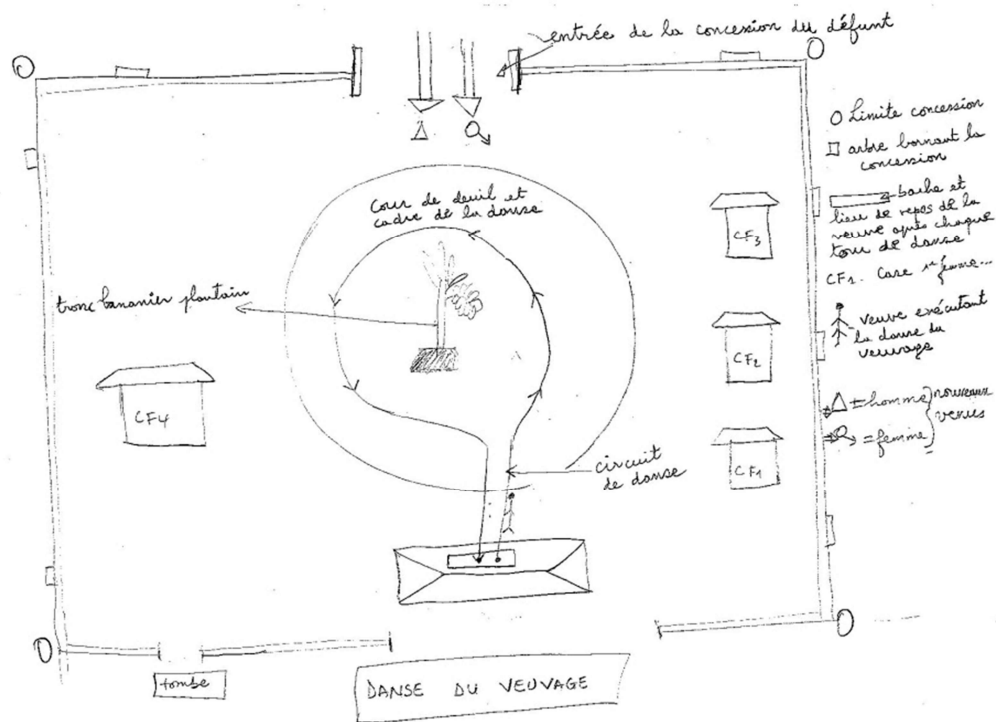 entrée de la concession du défunt
O Limite concession
arbre bornant la
concession
bache et
lieu de repos de la
veuve après chaque
tour de danse
CF1. Case 1re femme...
veuve exécutant
la danse du
veuvage
= homme
= femme
nouveaux
venus
cour de deuil et
cadre de la danse
tronc bananier plantain
CF3
CF2
CF4
CF1
circuit
de danse
tombe
DANSE DU VEUVAGE